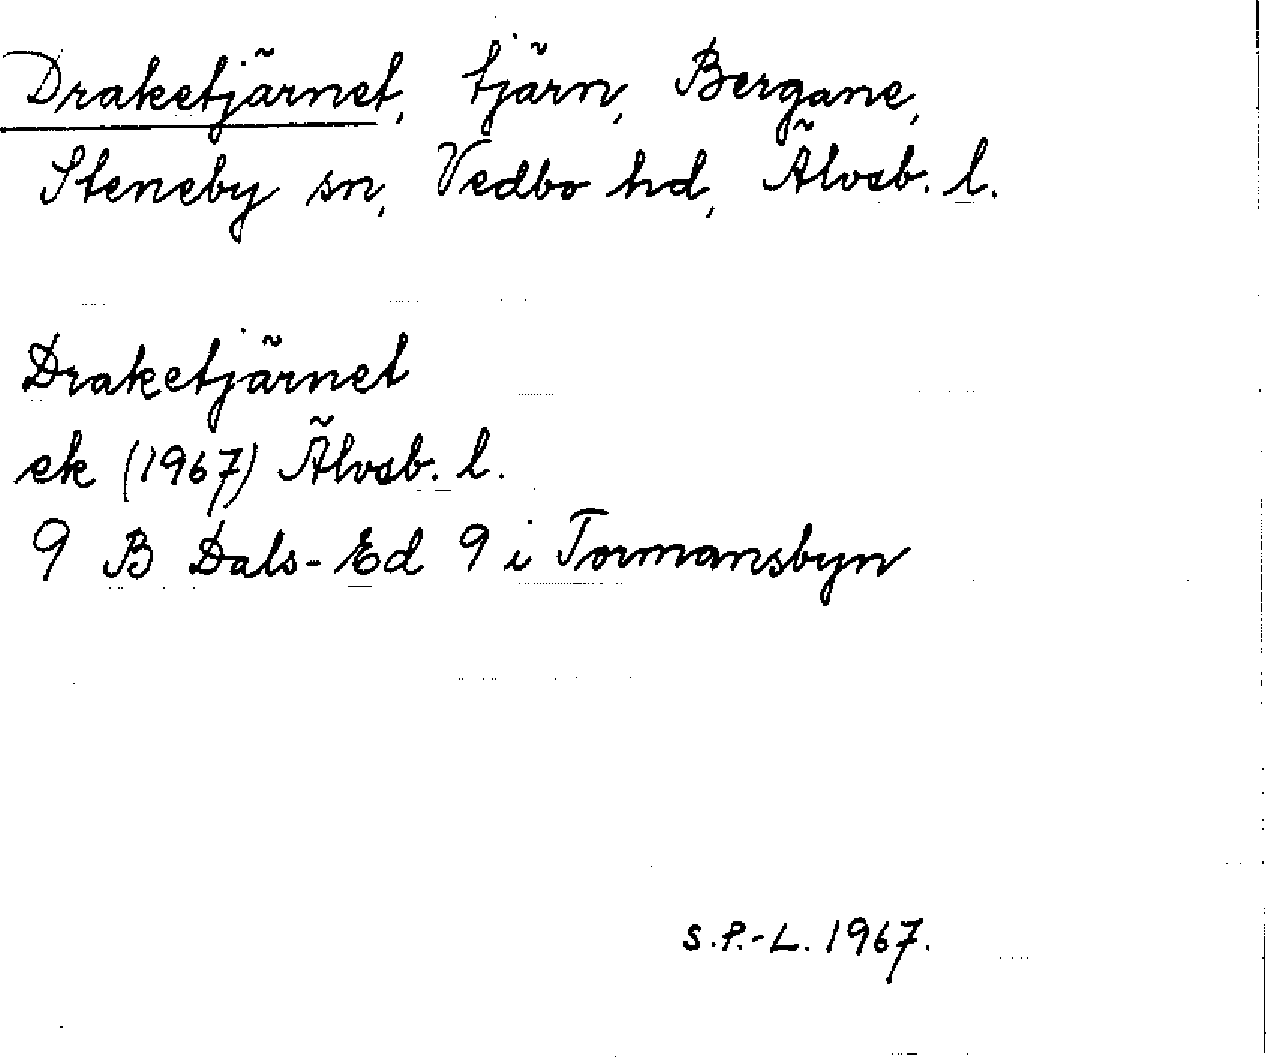 Draketjärnet, tjärn, Bergane,
Steneby sn, Vedbo hd, Älvsb. l.
Draketjärnet
ek (1967) Älvsb. l.
9 B Dals-Ed 9 i Tormansbyn
S.P.-L. 1967.